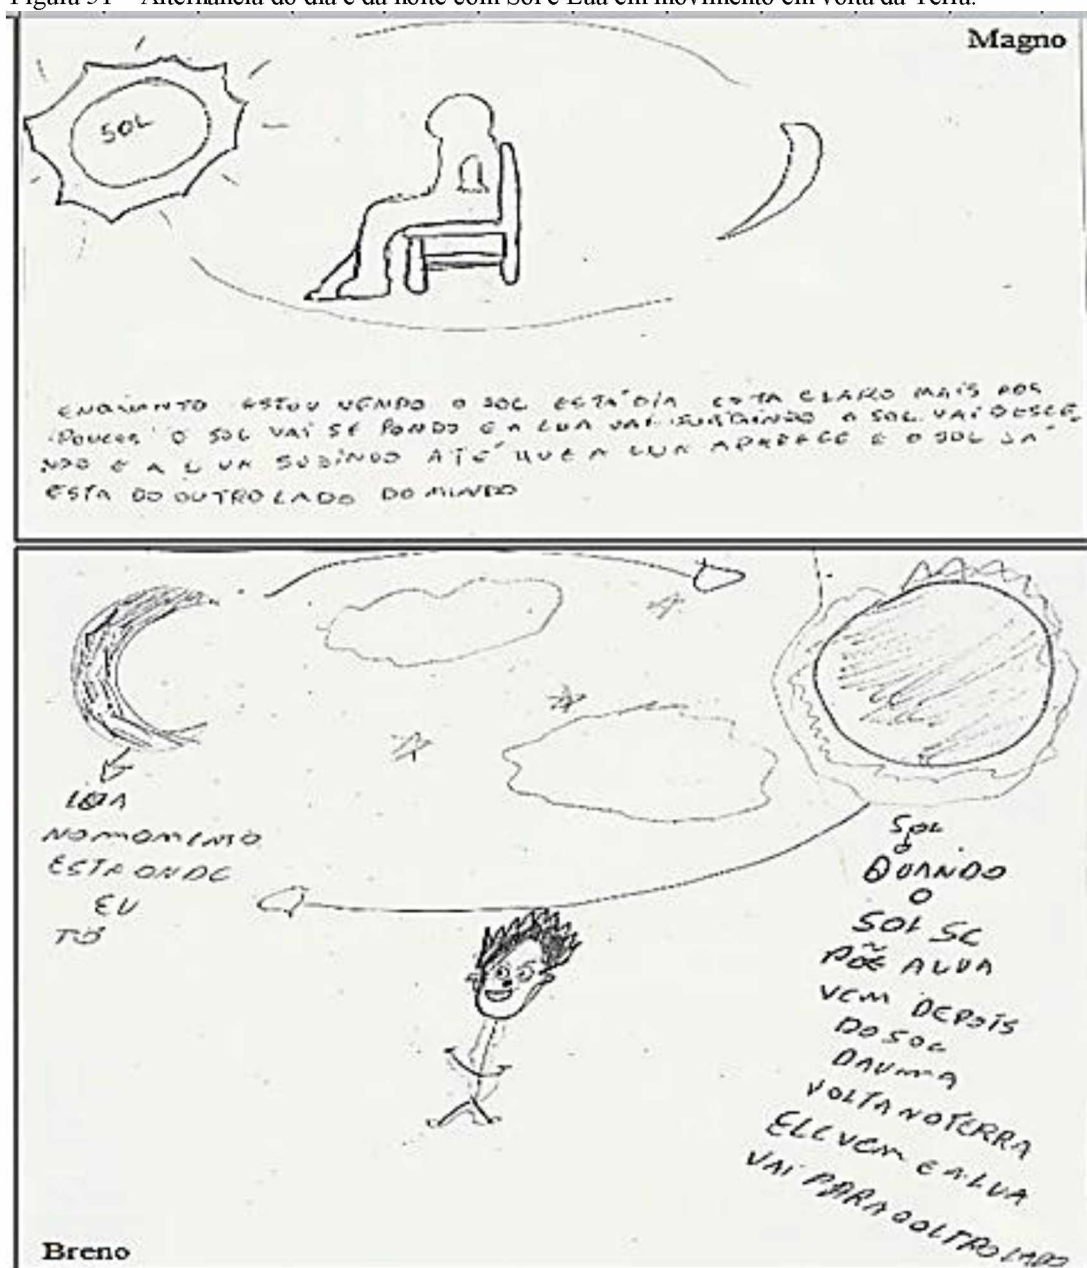 Figura 51 – Alternância do dia e da noite com Sol e Lua em movimento em volta da Terra.
Magno
SOL
ENQUANTO ESTOU VENDO O SOL ESTA DIA ESTA CLARO MAIS AOS
POUCOS O SOL VAI SE PONDO E A LUA VAI SURGINDO O SOL VAI DESCE
NDO E A LUA SUBINDO ATÉ QUE A LUA APARECE E O SOL JA
ESTA DO OUTRO LADO DO MUNDO
LUA
NO MOMENTO
ESTA ONDE
EU
TÔ
SOL
QUANDO
O
SOL SE
PÕE A LUA
VEM DEPOIS
DO SOL
DA UMA
VOLTA NO TERRA
ELE VEM E A LUA
VAI PARA O OLTRO LADO
Breno